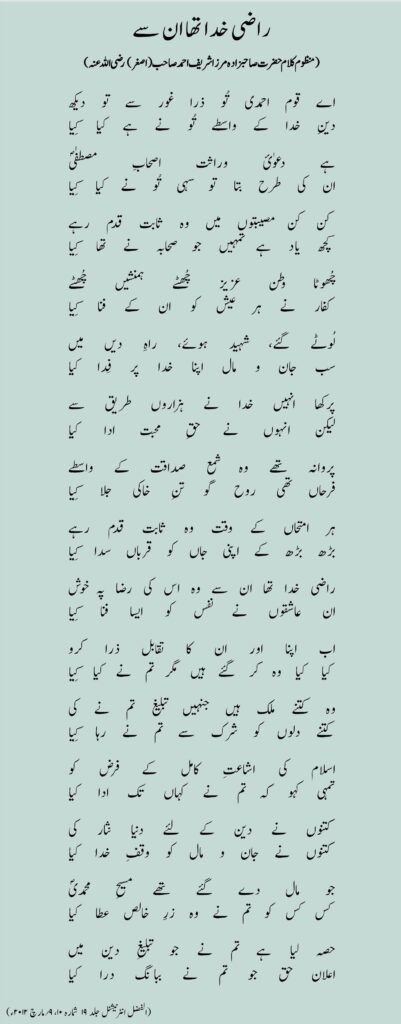 راضی خدا تھا ان سے
(منظوم کلام حضرت صاحبزادہ مرزا شریف احمد صاحب (اصغر) رضی اللہ عنہ)
اے قوم احمدی تُو ذرا غور سے تو دیکھ
دینِ خدا کے واسطے تُو نے ہے کیا کِیا
ہے دعویٰ وراثت اصحاب مصطفیٰؐ
ان کی طرح بتا تو سہی تُو نے کیا کِیا
کن کن مصیبتوں میں وہ ثابت قدم رہے
کچھ یاد ہے تمہیں جو صحابہ نے تھا کِیا
چُھوٹا وطن عزیز چُھٹے ہمنشیں چُھٹے
کفار نے ہر عیش کو ان کے فنا کِیا
لُوٹے گئے، شہید ہوئے، راہِ دیں میں
سب جان و مال اپنا خدا پر فِدا کِیا
پرکھا انہیں خدا نے ہزاروں طریق سے
لیکن انہوں نے حقِ محبت ادا کیا
پروانہ تھے وہ شمع صداقت کے واسطے
فرحاں تھی روح گو تنِ خاکی جلا کِیا
ہر امتحاں کے وقت وہ ثابت قدم رہے
بڑھ بڑھ کے اپنی جاں کو قرباں سدا کِیا
راضی خدا تھا ان سے وہ اس کی رضا پہ خوش
ان عاشقوں نے نفس کو ایسا فنا کِیا
اب اپنا اور ان کا تقابل ذرا کرو
کیا کیا وہ کر گئے ہیں مگر تم نے کیا کِیا
وہ کتنے ملک ہیں جنہیں تبلیغ تم نے کی
کتنے دلوں کو شرک سے تم نے رہا کِیا
اسلام کی اشاعتِ کامل کے فرض کو
تمہی کہو کہ تم نے کہاں تک ادا کیا
کتنوں نے دین کے لئے دنیا نثار کی
کتنوں نے جان و مال کو وقفِ خدا کیا
جو مال دے گئے تھے مسیحِ محمدیؐ
کس کس کو تم نے وہ زرِ خالص عطا کیا
حصہ لیا ہے تم نے جو تبلیغِ دین میں
اعلان حق جو تم نے ببانگِ درا کیا
(الفضل انٹرنیشنل جلد ۱۹ شمارہ ۱۰، ۹؍مارچ ۲۰۱۲ء)